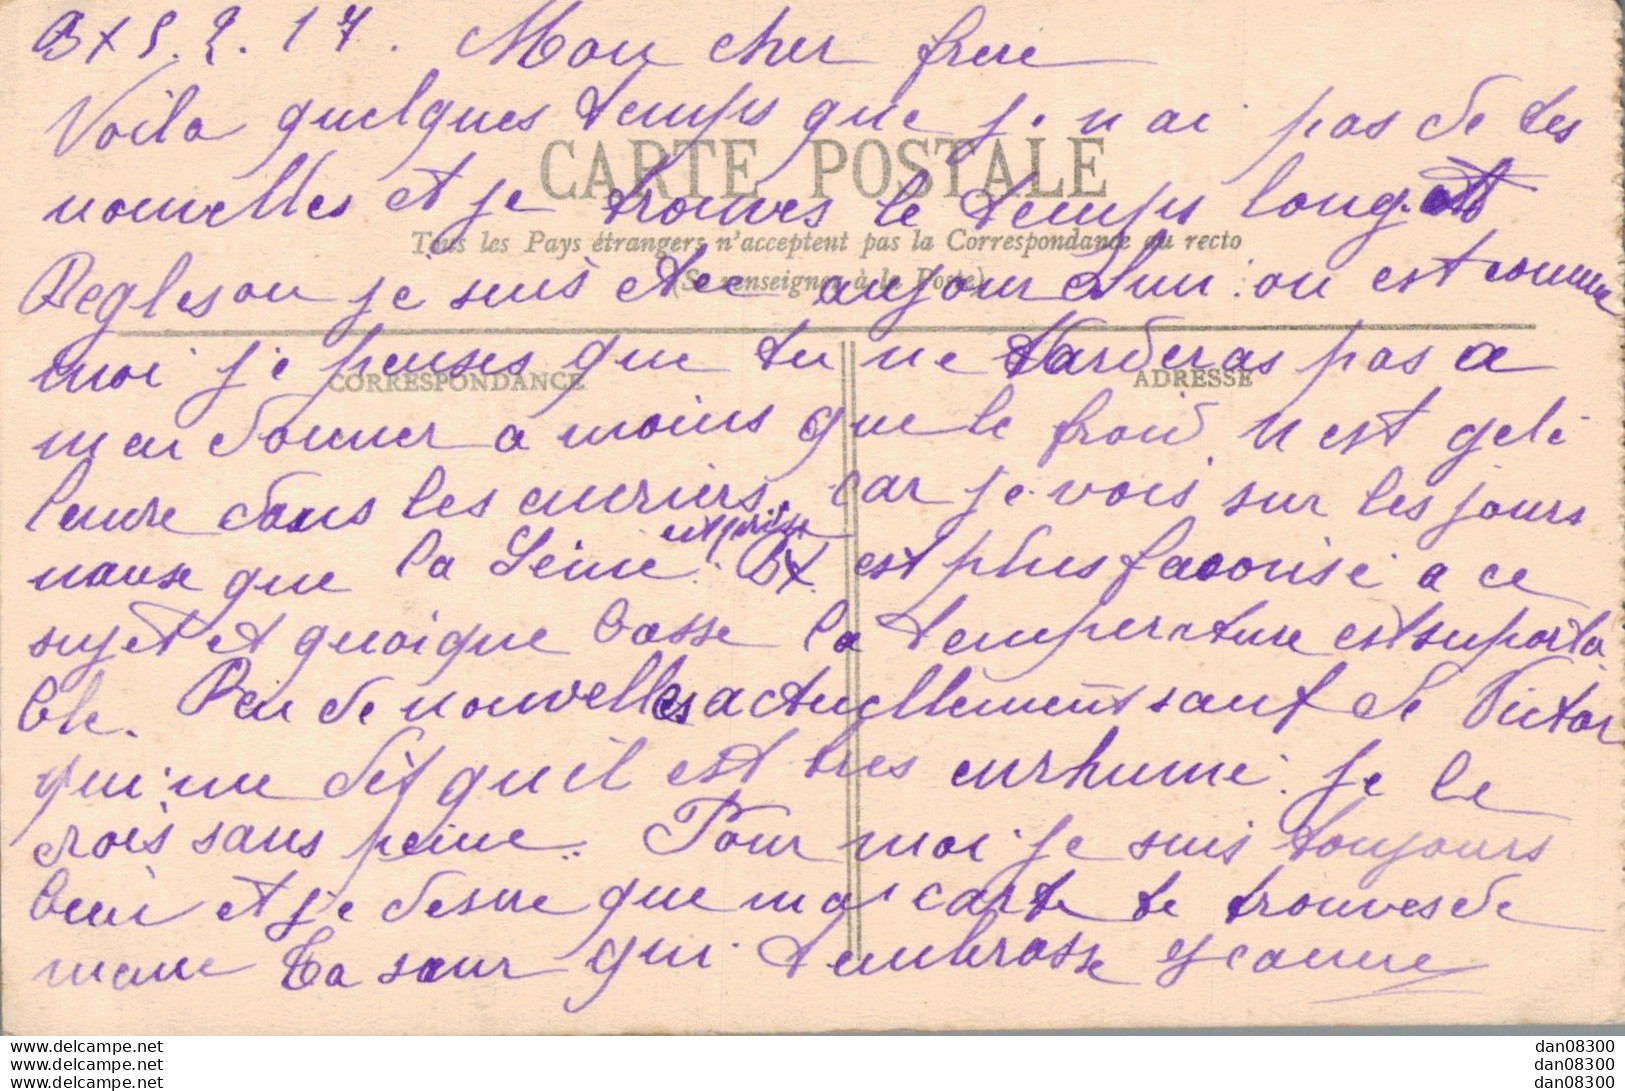 Bx 5.2.17. Mon cher frere
Voila quelques temps que je n ai pas de tes
CARTE POSTALE
nouvelles et je trouves le temps long.
Tous les Pays étrangers n'acceptent pas la Correspondance au recto
(Se renseigner à la Poste)
ou je suis etee aujourdhui on est comme
moi je penses que tu ne tarderas pas a
CORRESPONDANCE
ADRESSE
men donner a moins que le froid n est gelé
lencre dans les encriers. Car je vois sur les jour
naux que la Seine est prise. Bx est plus favorisé a ce
sujet et quoique basse la temperature est suporta
ble. Peu de nouvelles actuellement sauf de Victor
qui me dit qu il est tres enrhumé. je le
crois sans peine. Pour moi je suis toujours
bien et je desire que ma carte te trouves de
meme Ta sœur qui tembrasse Jeanne
www.delcampe.net
www.delcampe.net
www.delcampe.net
dan08300
dan08300
dan08300